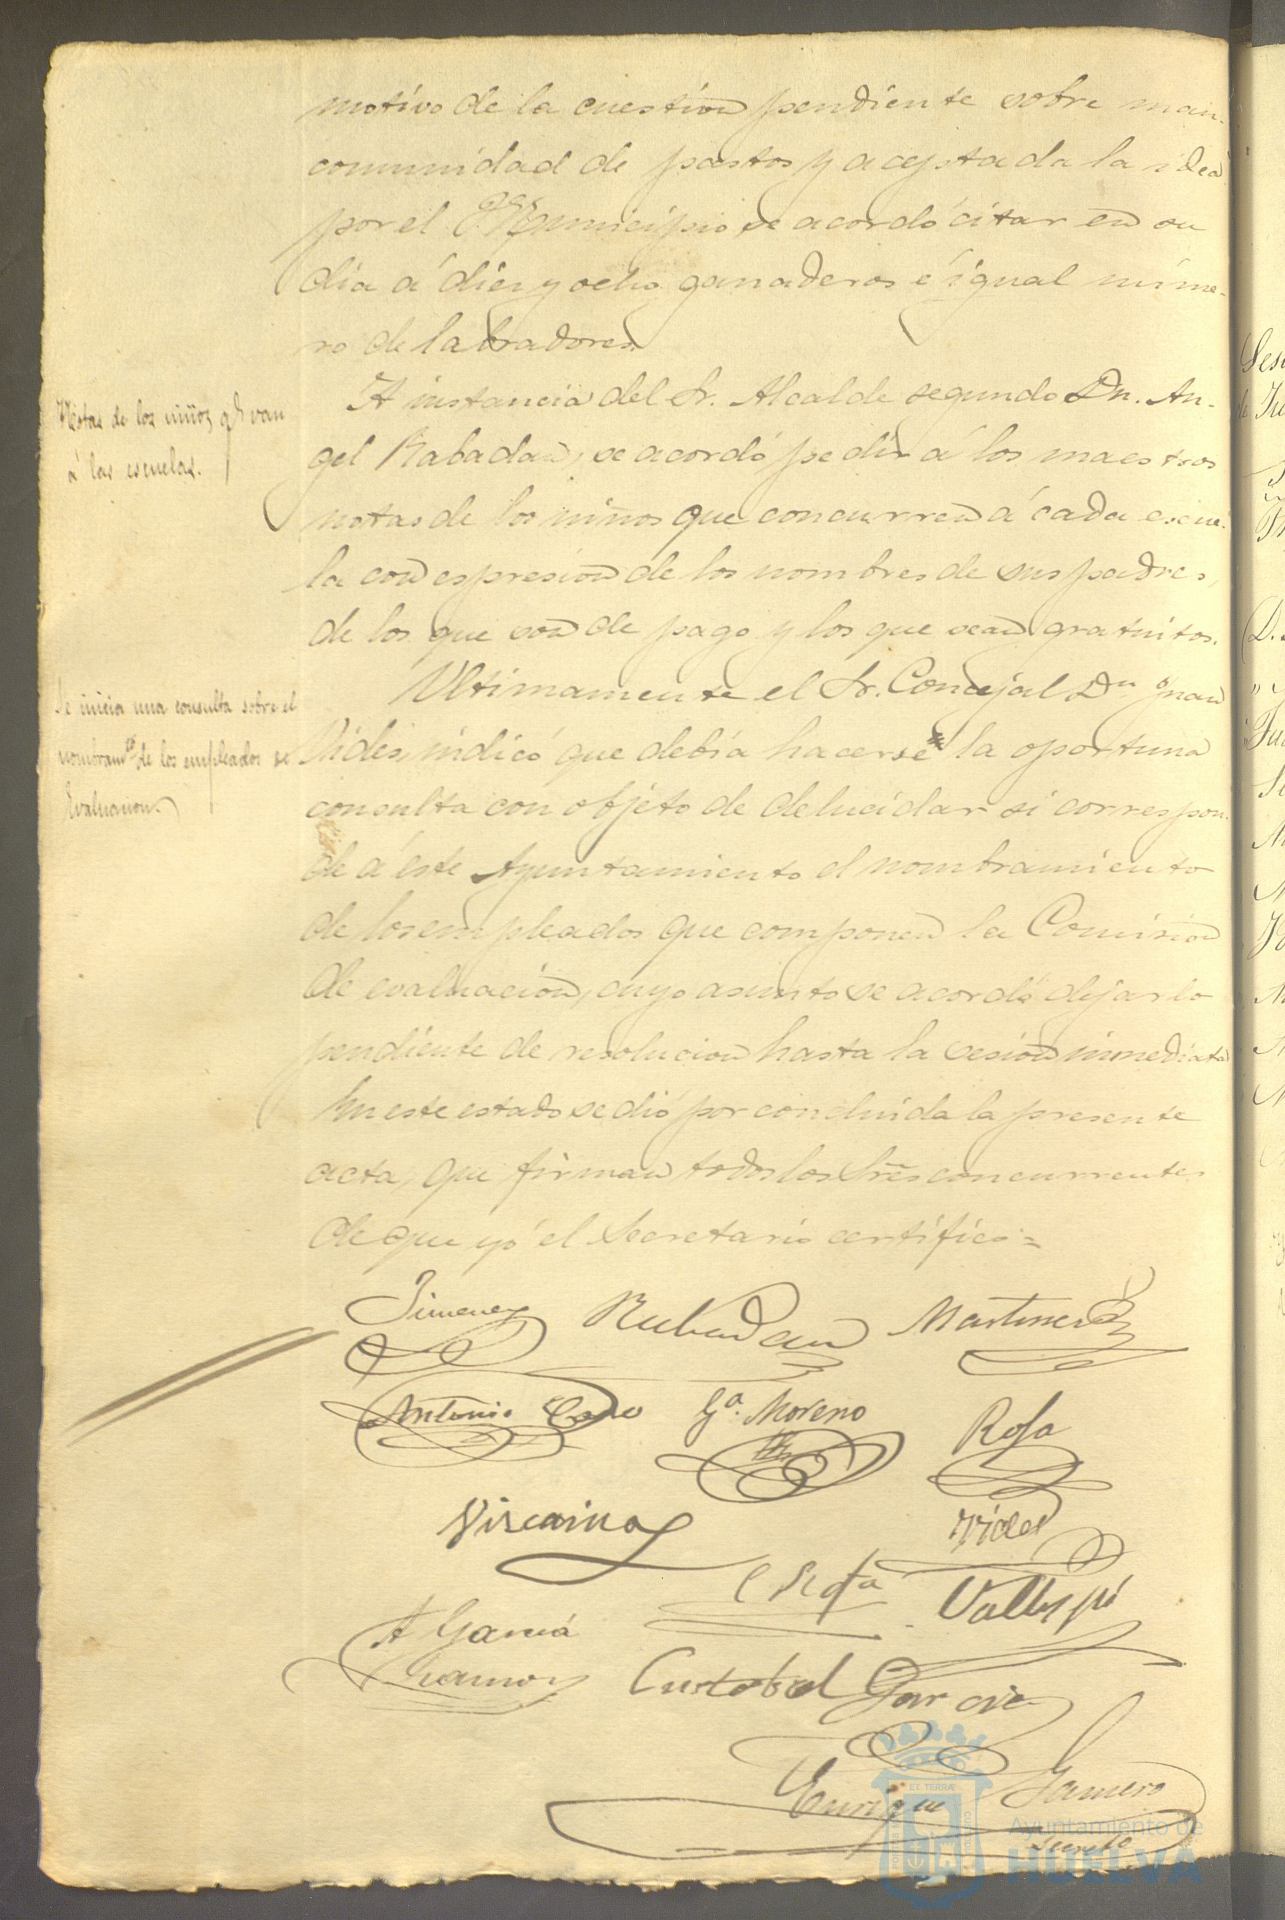 motivo de la cuestion pendiente sobre man-
comunidad de pastos y aceptada la idea
por el Municipio, se acordó citar en su
dia á diez y ocho ganaderos é igual núme-
ro de labradores.
Notas de los niños q̃ van
á las escuelas.
A instancia del Sr. Alcalde segundo Dn. An-
gel Rabadan, se acordó pedir á los maestros
notas de los niños que concurren á cada escue-
la con espresion de los nombres de sus padres,
de los que son de pago y los que sean gratuitos.
Se inicia una consulta sobre el
nombramto de los empleados de
Evaluacion.
Ultimamente el Sr. Concejal Dn Juan
Vides, indicó que debia hacerse la oportuna
consulta con objeto de delucidar si correspon-
de á éste Ayuntamiento el nombramiento
de los empleados que componen la Comision
de evaluacion, cuyo asunto se acordó dejarlo
pendiente de resolucion hasta la sesion inmediata
En este estado se dió por concluida la presente
acta, que firman todos los Sres concurrentes
de que yo el Secretario certifico =
Jimenez Rabadan Martinez
Antonio Cano Ga. Moreno Rofa
Vizcaino Vides
Vallespí
A Garcia
Ramos Cristobal Garcia
Enrique Gamero
Secreto
Ayuntamiento de
HUELVA